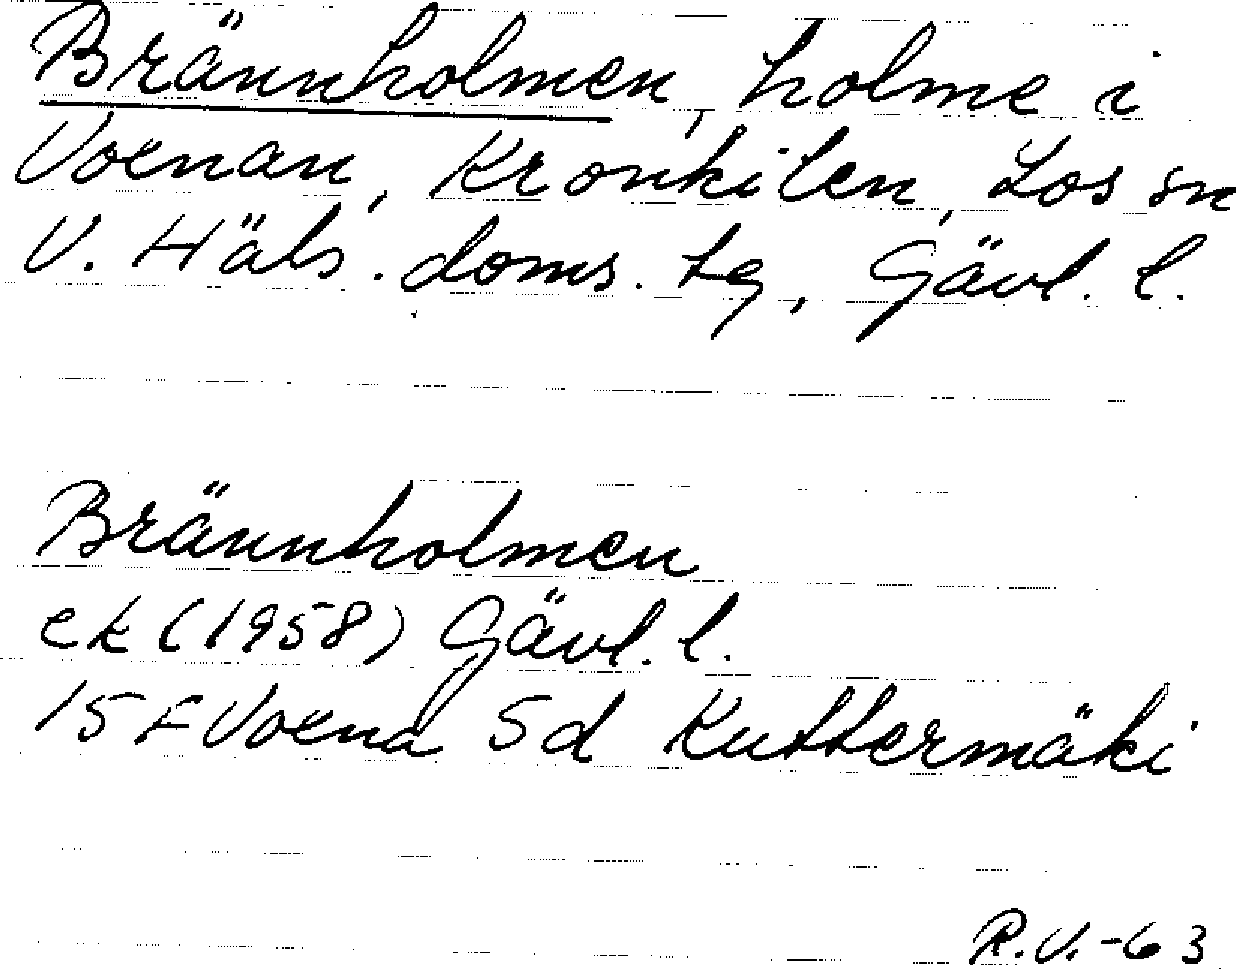 Brännholmen, holme i
Voxnan, Kronkilen, Los sn
V. Häls. doms. tg, Gävl. l.
Brännholmen
ek (1958) Gävl. l.
15 F Voxna 5d Kuttermäki
R.V.-63